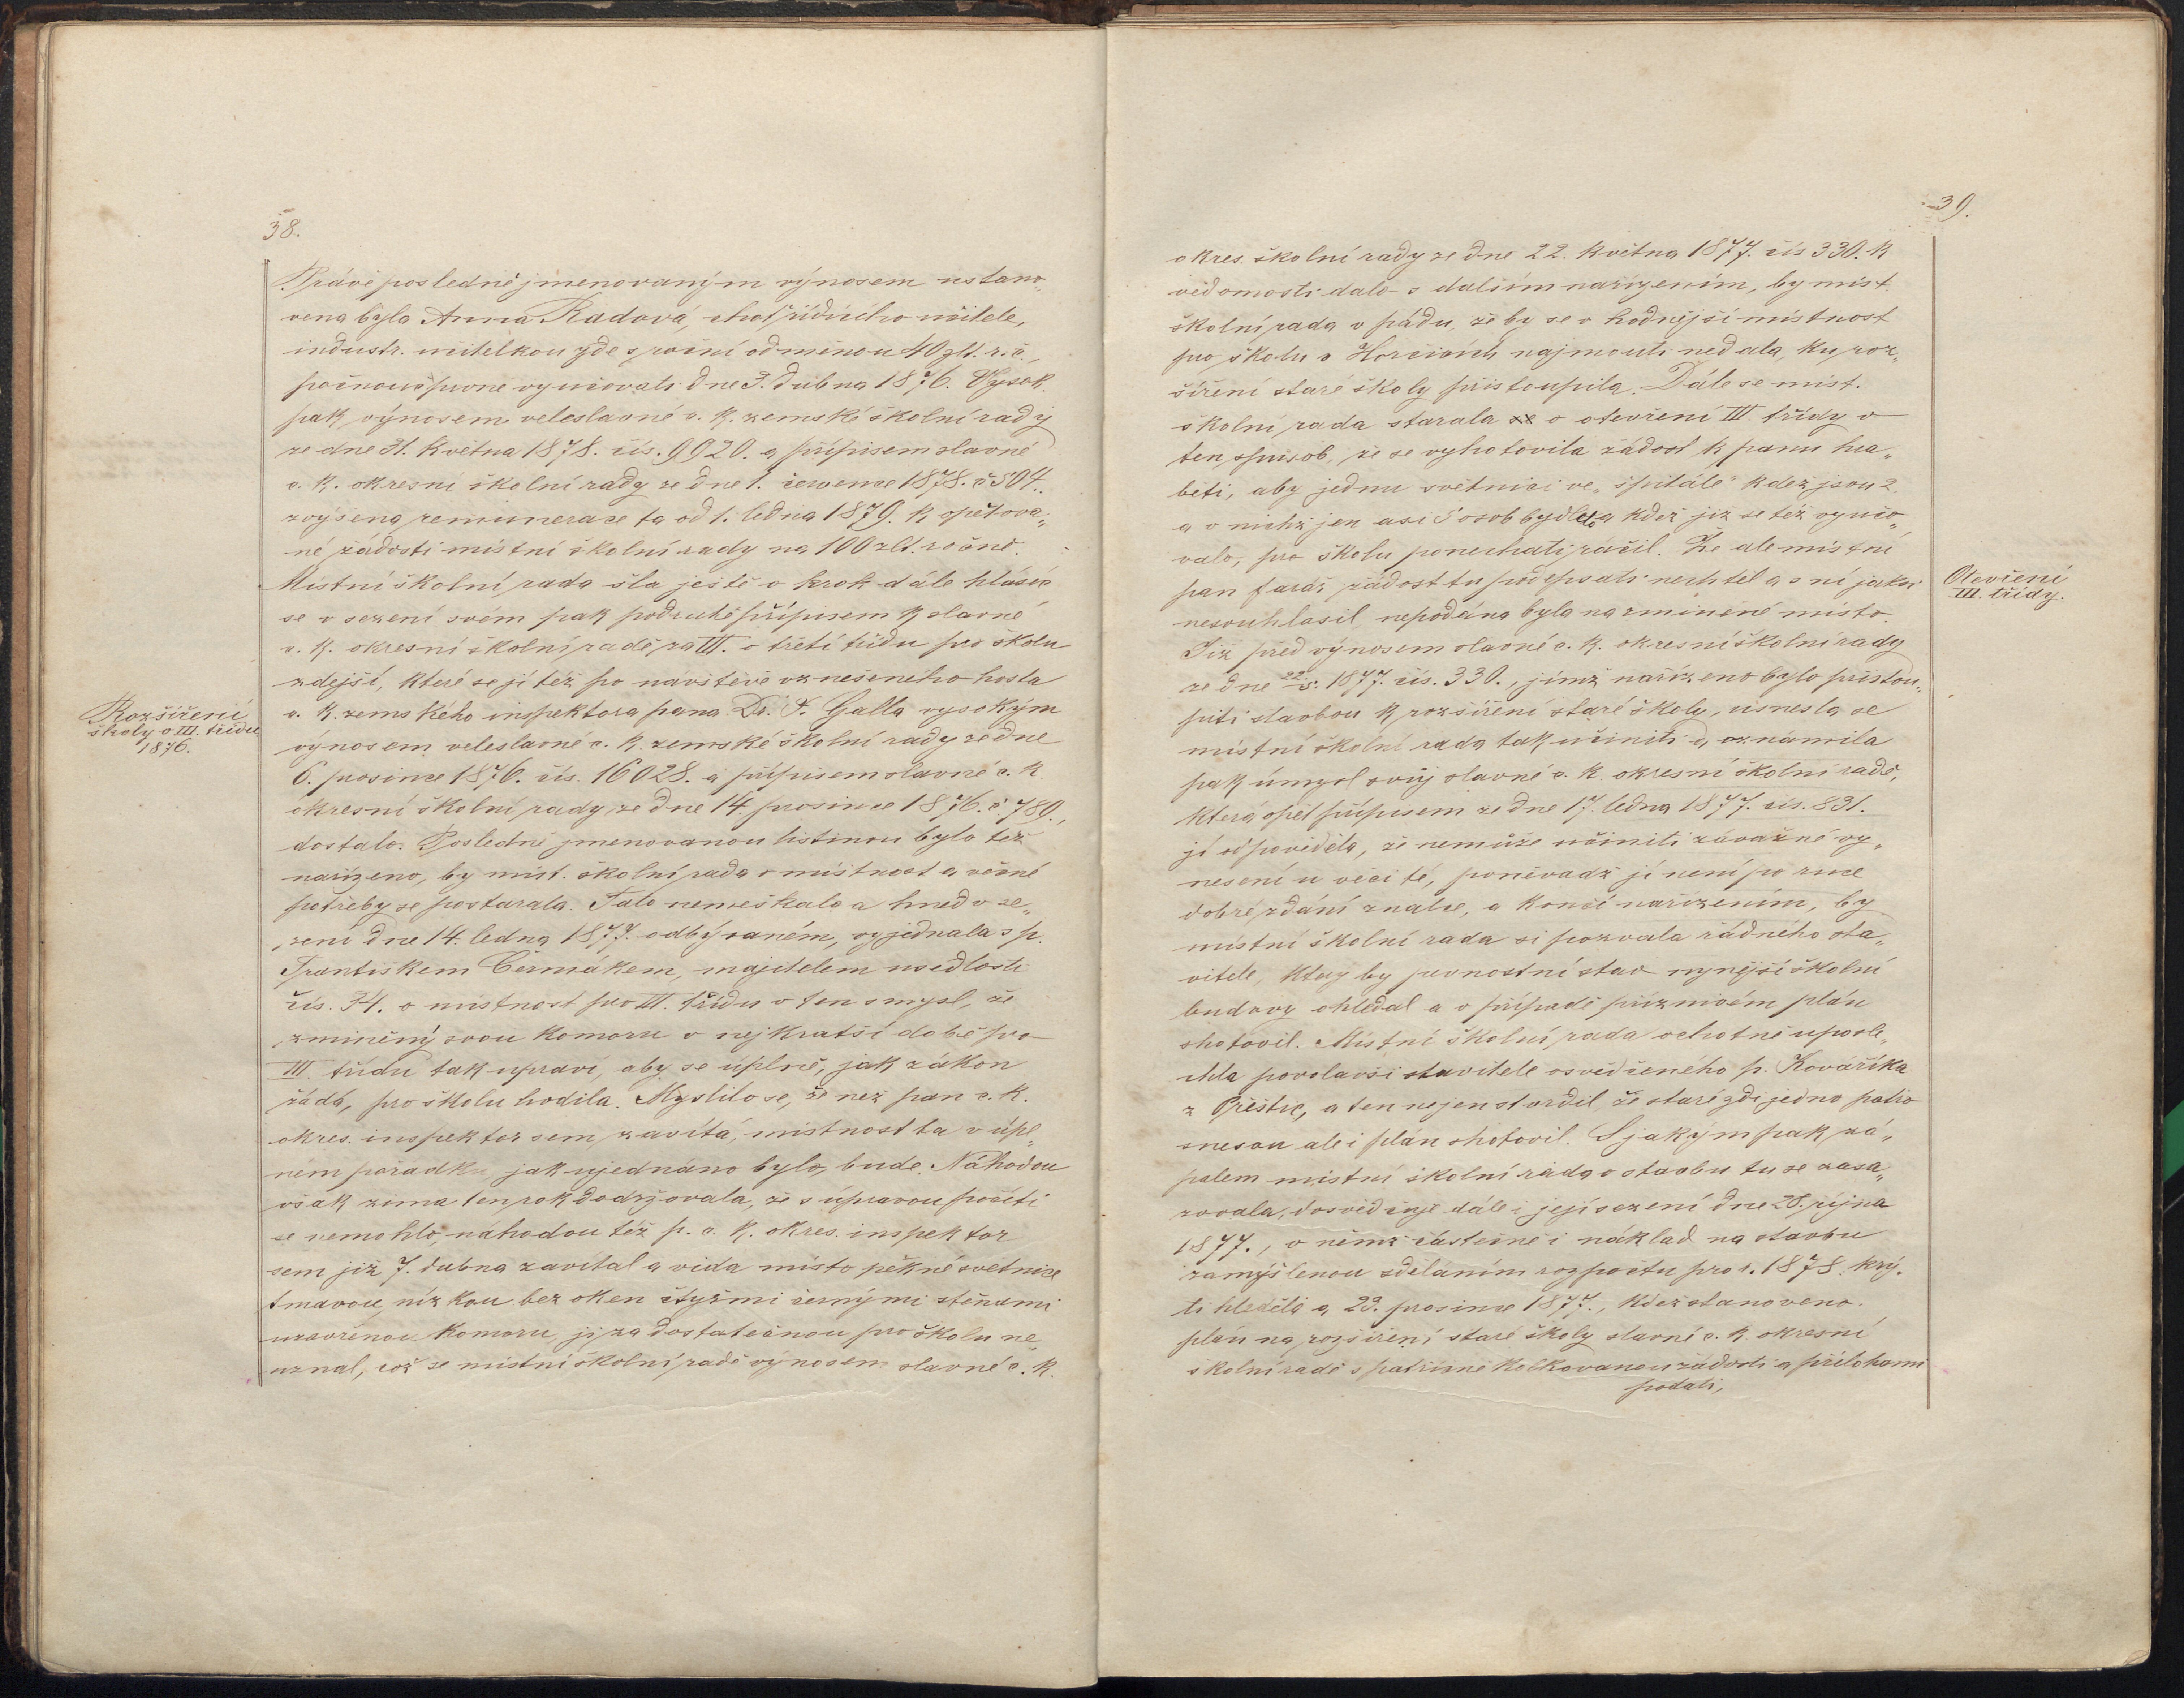 38.
Právě posledně jmenovaným výnosem ustano„
vena byla Anna Radová, choť řídícího učitele,
industr. učitelkou zde s roční odměnou 40 zlt. r. č.,
počnouc prvně vyučovati dne 3. dubna 1876. Vysok.
pak výnosem veleslavné c. k. zemské školní rady
ze dne 31. května 1878. čís. 9920. a přípisem slavné
c. k. okresní školní rady ze dne 1. července 1878. č 504.
zvýšena remunerace ta od 1. ledna 1879. k opětova„
né žádosti místní školní rady na 100 zlt. ročně.
Místní školní rada šla ještě o krok dále hlásíc
se v sezení svém pak podruhé přípisem k slavné
c. k. okresní školní radě za III. o třetí třídu pro školu
zdejší, které se jí též po návštěvě vznešeného hosta
c. k. zemského inspektora pana Dr. F. Galla vysokým
výnosem veleslavné c. k. zemské školní rady ze dne
6. prosince 1876. čís. 16028. a přípisem slavné c. k.
okresní školní rady ze dne 14. prosince 1876. č 789.,
dostalo. Posledně jmenovanou listinou bylo též
nařízeno, by míst. školní rada o místnost a věcné
potřeby se postarala. Tato nemeškala a hned v se„
zení dne 14. ledna 1877. odbývaném, vyjednala s p.
Františkem Čermákem, majitelem usedlosti
čís. 34. o místnost pro III. třídu v ten smysl, že
zmíněný svou komoru v nejkratší době pro
III. třídu tak upraví, aby se úplně, jak zákon
žádá, pro školu hodila. Myslilo se, že než pan c. k.
okres. inspektor sem zavítá, místnost ta v úpl„
ném pořádku jak ujednáno bylo, bude. Náhodou
však zima ten rok dodržovala, že s úpravou počíti
se nemohlo, náhodou též p. c. k. okres. inspektor
sem již 7. dubna zavítal a vida místo pěkné světnice
tmavou, nízkou bez oken čtyřmi černými stěnami
uzavřenou komoru, ji za dostatečnou pro školu ne
uznal, což se místní školní radě výnosem slavné c. k.
Rozšíření
školy o III. třídu
1876.
39.
okres. školní rady ze dne 22. května 1877. čís 330. k
vědomosti dalo s dalším nařízením, by míst.
školní rada v pádu, že by se v hodnější místnost
pro školu v Horšicích najmouti nedala, ku roz„
šíření staré školy přistoupila. Dále se míst.
školní rada starala se o otevření III. třídy v
ten spůsob, že se vyhotovila žádost k panu hra„
běti, aby jednu světnici ve „špitále“ kdež jsou 2
a v nichž jen asi 5 osob bydlelo a kdež již se též vyučo„
valo, pro školu ponechati ráčil. Že ale místní
pan farář žádost tu podepsati nechtěl a s ní jaksi
nesouhlasil, nepodána byla na zmíněné místo.
Již před výnosem slavné c. k. okresní školní rady
ze dne 22/5. 1877. čís. 330., jímž nařízeno bylo přistou„
piti stavbou k rozšíření staré školy, usnesla se
místní školní rada tak učiniti a, oznámila
pak úmysl svůj slavné c. k. okresní školní radě,
která opět přípisem ze dne 17. ledna 1877. čís. 831.
jí odpověděla, že nemůže učiniti závažné vy„
nesení u věci té, poněvadž jí není po ruce
dobré zdání znalce, a končí nařízením, by
místní školní rada si pozvala řádného sta„
vitele, který by pevnostní stav nynější školní
budovy ohledal a v případě příznivém plán
shotovil. Místní školní rada ochotně uposle„
chla povolavši stavitele osvědčeného p. Kovaříka
z Přeštic, a ten nejen stvrdil, že staré zdi jedno patro
snesou ale i plán shotovil. S jakým pak zá„
palem místní školní rada o stavbu tu se zasa„
zovala, dosvědčuje dále i její sezení dne 28. října
1877., v němž částečně i náklad na stavbu
zamýšlenou sděláním rozpočtu pro r. 1878. krý„
ti hleděla a 23. prosince 1877., kdež stanoveno.
plán na rozšíření staré školy slavné c. k. okresní
školní radě s patřičně kolkovanou žádostí a přílohami
podati,
Otevření
III. třídy.